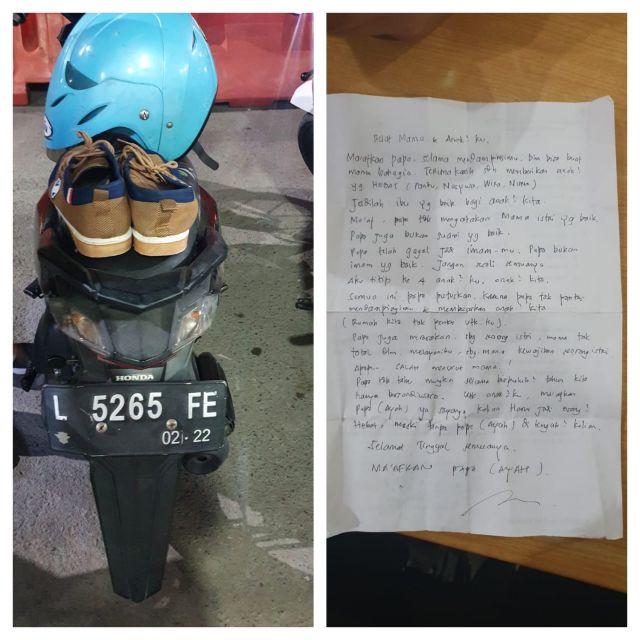 HONDA
L 5265 FE
02 22
Buat Mama & Anak² ku.
Maafkan papa selama mendampingimu. blm bisa buat
mama bahagia. Terimakasih sdh memberikan anak²
yg Hebat
Jadilah ibu yg baik bagi anak² kita.
Ma'af, papa tak mengatakan Mama istri yg baik.
Papa juga bukan suami yg baik.
Papa telah gagal jdi imam-mu. Papa bukan
imam yg baik. Jangan semuanya
Aku titip ke 4 anak² ku, anak² kita.
Semua ini papa putuskan, karena papa tak pantas
mendampingimu & membesarkan anak kita
(Rumah kita tak pantas utk ku).
Papa juga merasakan, sbg seorang istri, mama tak
total dlm melayaniku, sbg mana kewajiban seorang istri
Apakah SALAH menurut mama?
Papa tdk tahu, mungkin selama tahun kita
hanya bersandiwara. Utk anak² ku, maafkan
Papa (Ayah) yg sayang kalian Harus jdi orang²
Hebat, meski tanpa papa (Ayah) di kalian.
Selamat Tinggal semuanya.
MA'AFKAN papa (AYAH).